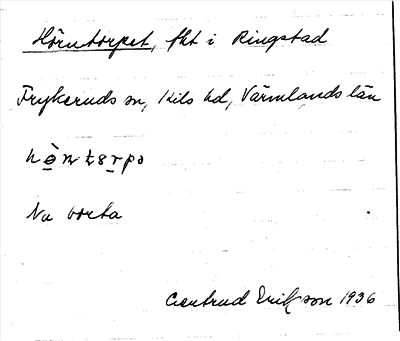 Hörntorpet, fht i Ringstad
Frykeruds sn, Kils hd, Värmlands län
hò̱ṉtɜṟpɜ
Nu borta
Gertrud Erikson 1936